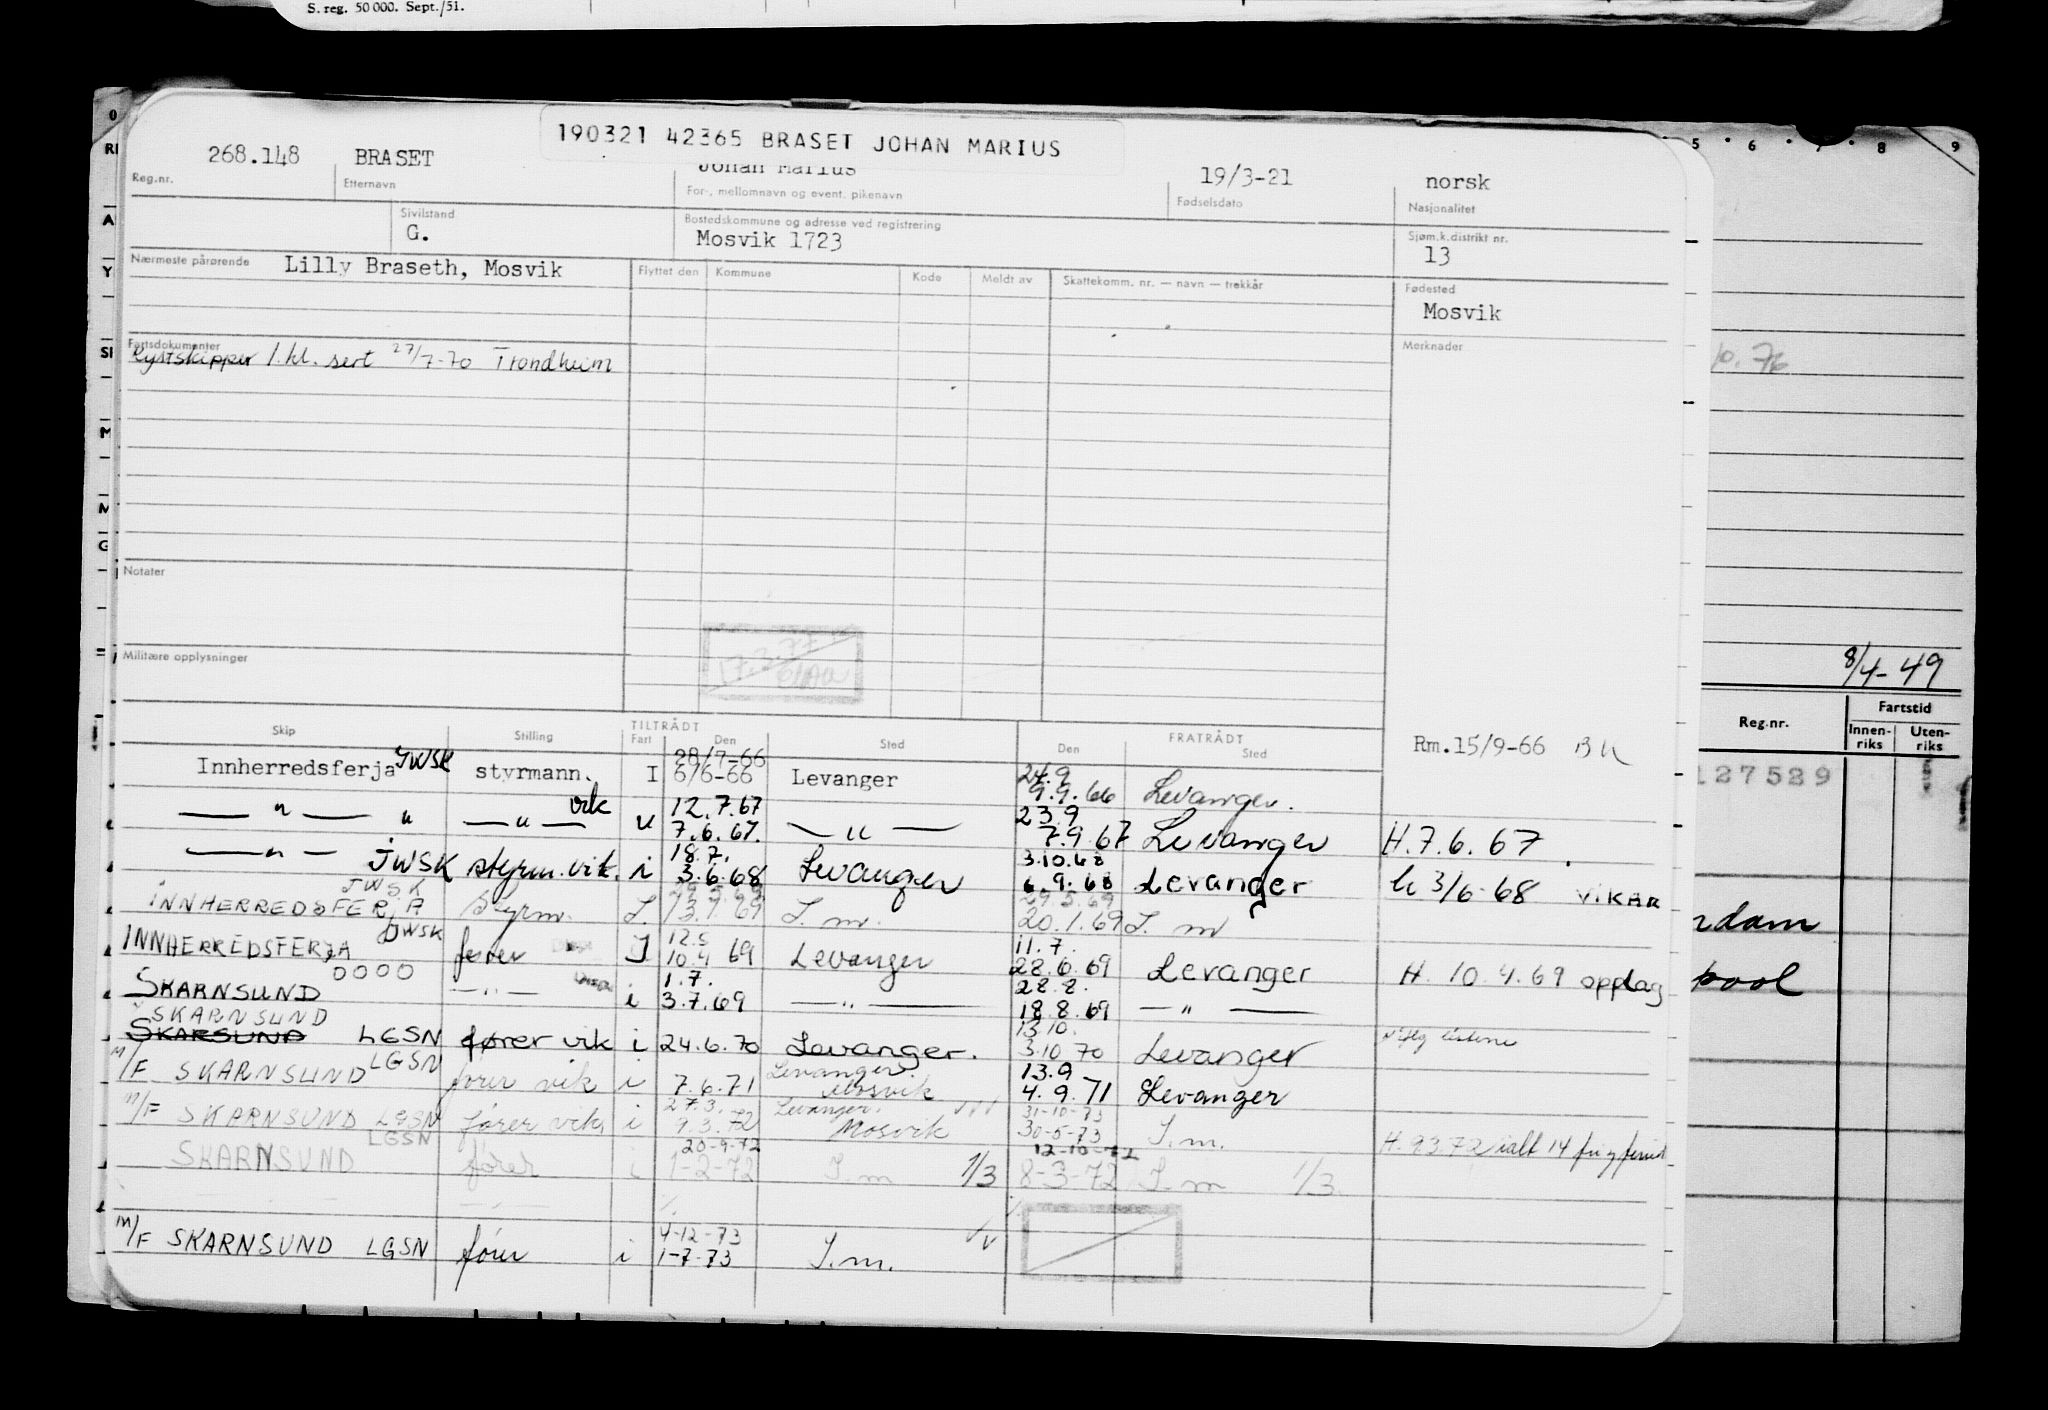 S. reg. 50 000. Sept./51.
190321 42365 BRASET JOHAN MARIUS
268.148 BRASET Johan Marius 19/3-21 norsk
Reg.nr. Etternavn For-, mellomnavn og event. pikenavn Fødselsdato Nasjonalitet
Sivilstand Bostedskommune og adresse ved registrering Sjøm.k.distrikt nr.
G. Mosvik 1723 13
Nærmeste pårørende Lilly Braseth, Mosvik Flyttet den Kommune Kode Meldt av Skattekomm. nr. — navn — trekkår Fødested
Mosvik
Fartsdokumenter Merknader
Kystskipper 1. kl. sert 27/7-70 Trondheim
Notater
Militære opplysninger
TILTRÅDT FRATRÅDT
Skip Stilling Fart Den Sted Den Sted
28/7-66 24.9
Innherredsferja JWSK styrmann. I 6/6-66 Levanger 9.9.66 Levanger. Rm.15/9-66 BK
vik 12.7.67 23.9
— " — " — " — " 7.6.67. — " — 7.9.67 Levanger H.7.6.67.
18.7. 3.10.68
— " — JWSK styrm. vik. i 3.6.68 Levanger 6.9.68 Levanger h 3/6-68 VIKAR
JWSK 29.5.69
INNHERREDSFERJA styrm. I. 13.1.69 S.m. 20.1.69 S.m
JWSK 12.5 11.7.
INNHERREDSFERJA fører I 10.4 69 Levanger 28.6.69 Levanger H. 10.4.69 opplag
OOOO 1.7. 28.8.
SKARNSUND — " — i 3.7.69 — " — 18.8.69 — " —
SKARNSUND 13.10.
SKARSUND LGSN fører vik i 24.6.70 Levanger. 3.10 70 Levanger
LGSN Levanger. 13.9
M/F SKARNSUND fører vik i 7.6.71 Mosvik 4.9.71 Levanger
27.3. Levanger. 31-10-73
M/F SKARNSUND LGSN fører vik i 9.3.72 Mosvik 30-5-73 S.m. H. 9.3.72
LGSN 20-9-72 12-10-72
SKARNSUND fører i 1-2-72 S.m 1/3 8-3-72 S.m 1/3
4-12-73
M/F SKARNSUND LGSN fører i 1-7-73 S.m.
5 · 6 · 7 · 8 9
8/4-49
Reg.nr. Fartstid
Innenriks Utenriks
127529